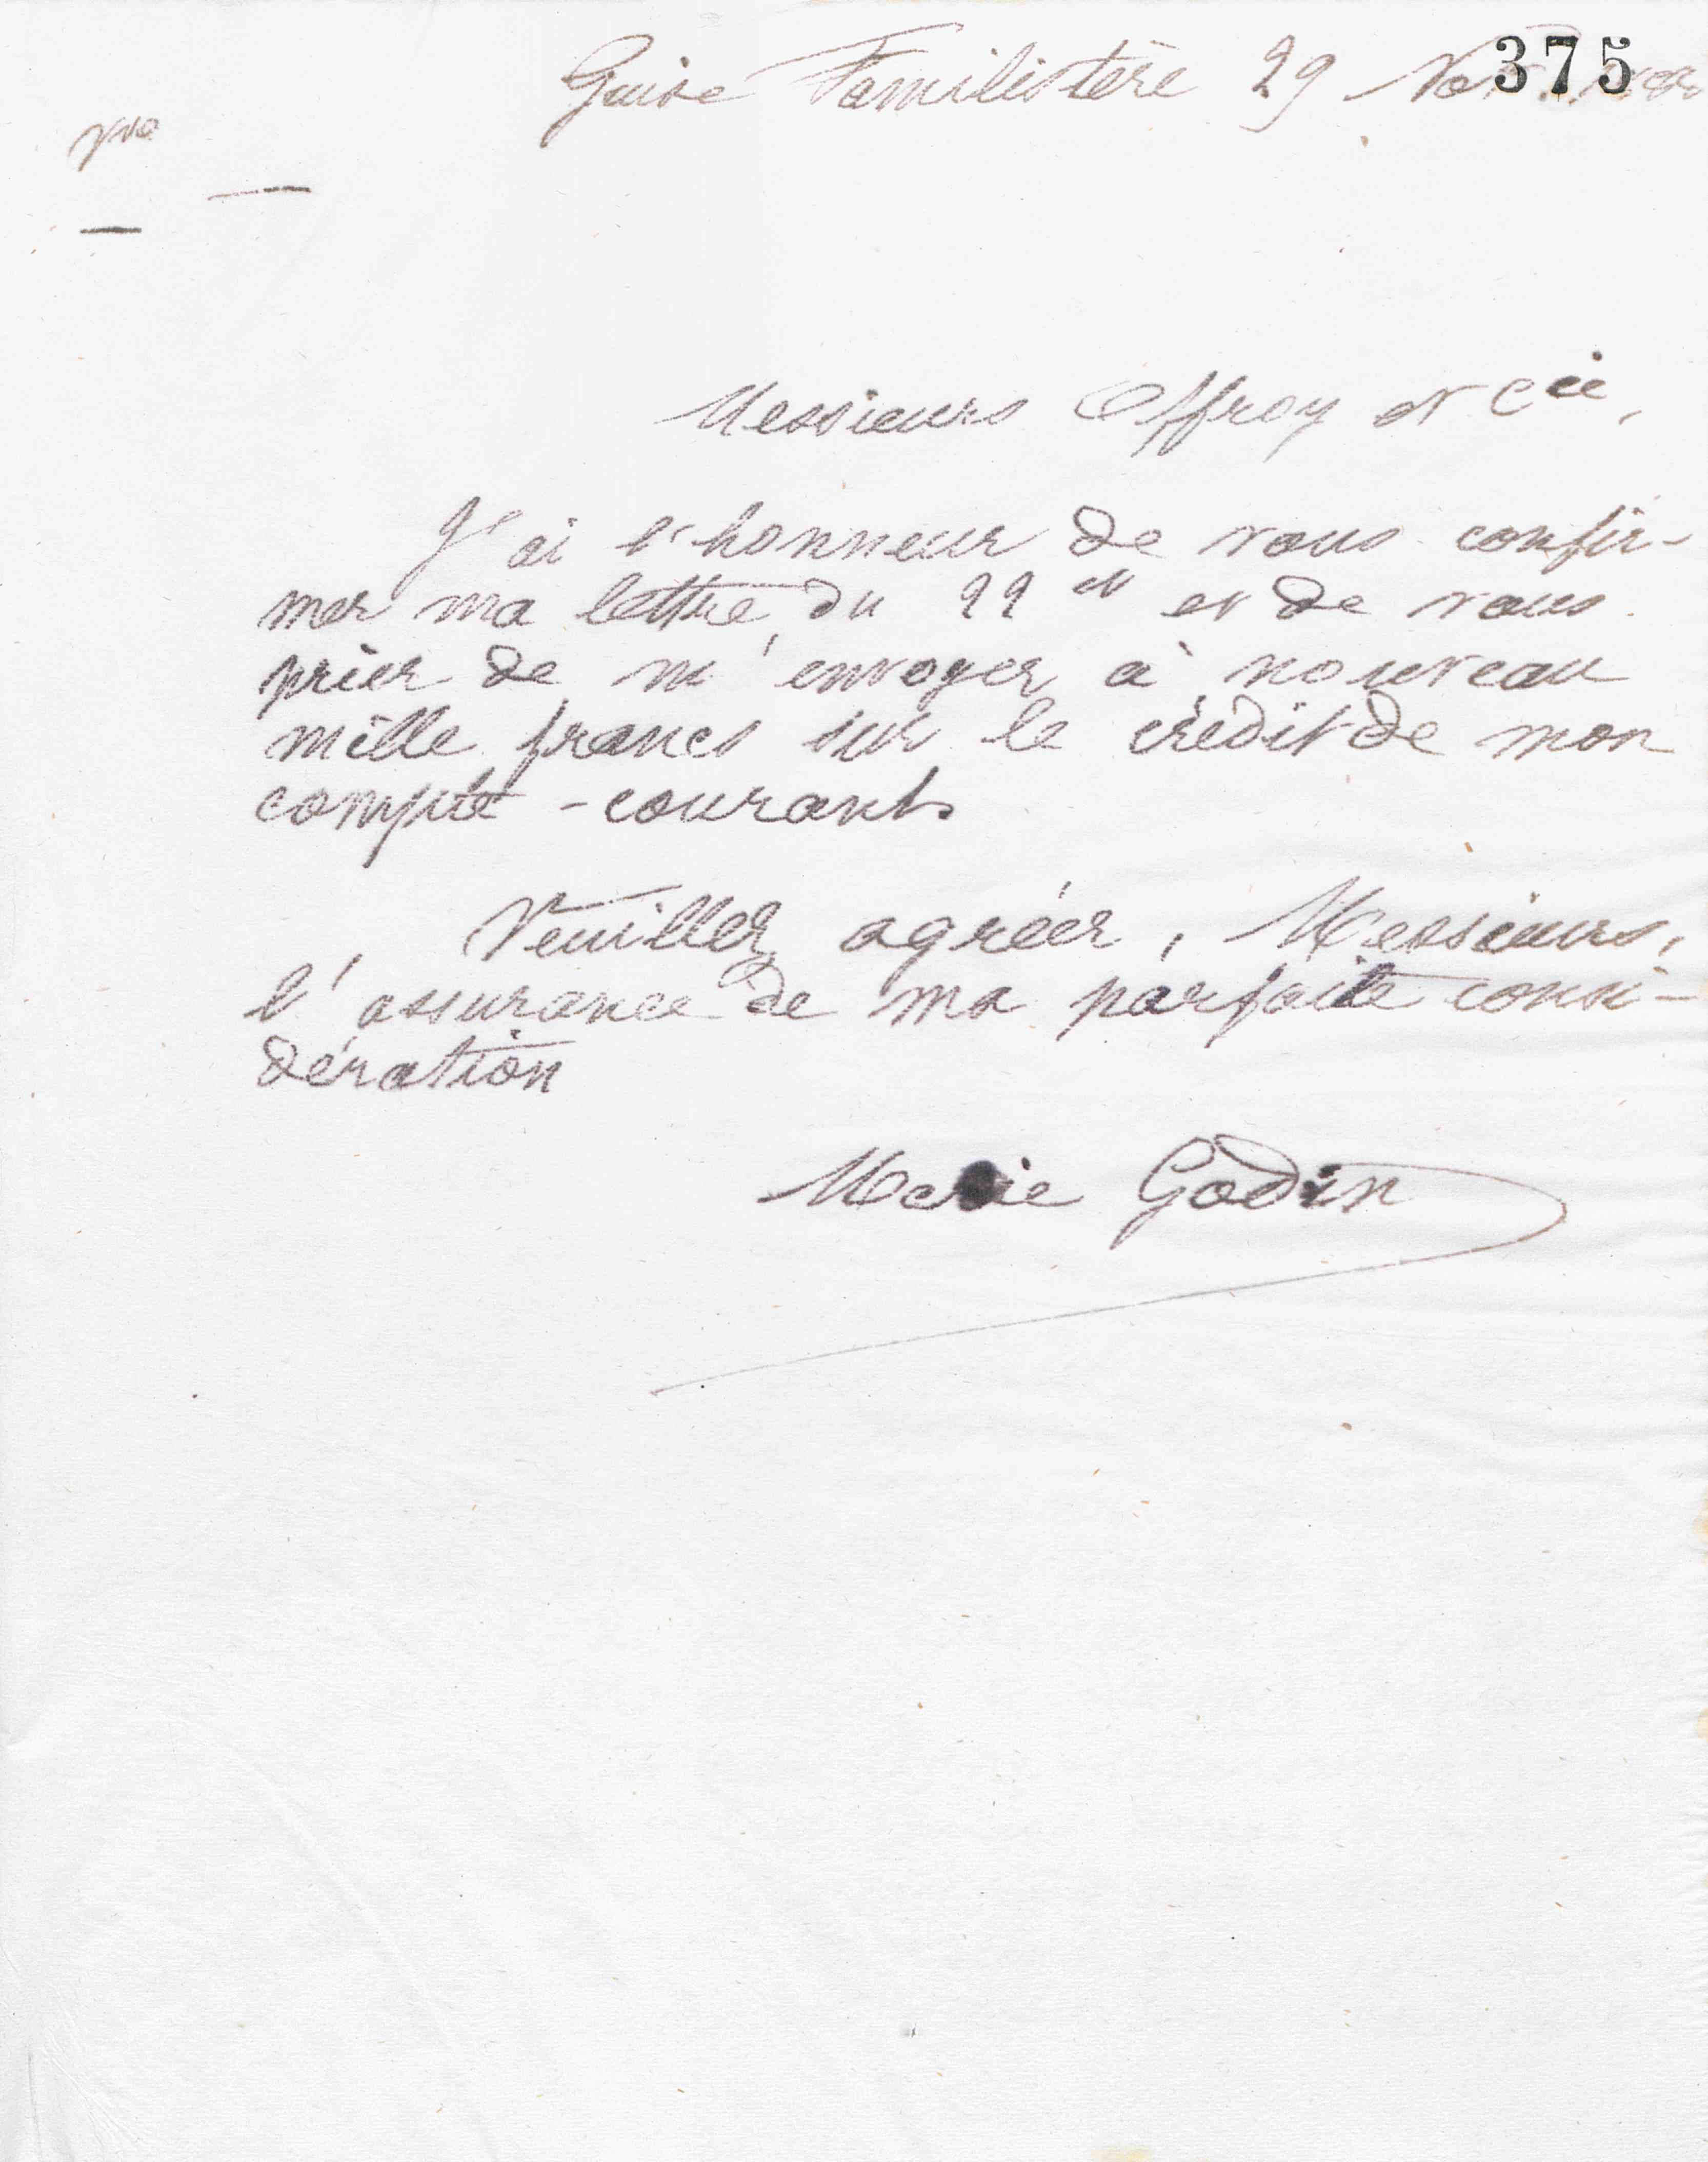 375
Guise Familistère 29 Nov.
Messieurs Offroy et Cie,
J'ai l'honneur de vous confir-
mer ma lettre du 22 ct et de vous
prier de m'envoyer à nouveau
mille francs sur le crédit de mon
compte-courant.
Veuillez agréer, Messieurs,
l'assurance de ma parfaite consi-
dération
Marie Godin